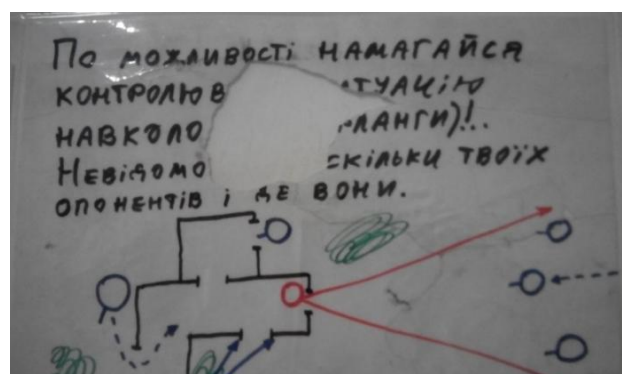 По можливості намагайся
контролюв туацію
навколо ланги)!..
Невідомо скільки твоїх
опонентів і де вони.